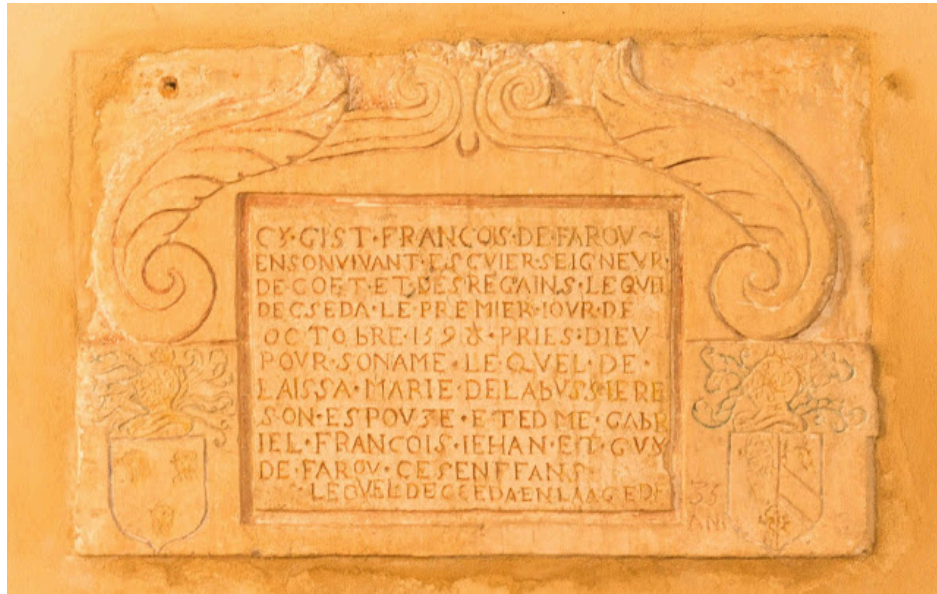 CY·GIST·FRANÇOIS·DE·FAROU~
ENSONVIVANT·ESCVIER·SEIGNEVR·
DE·COET·ET·DES·REGAINS·LEQVEL
DECSEDA·LE·PREMIER·IOVR·DE
OCTOBRE·159·PRIES:DIEV
POVR·SONAME·LEQVEL·DE·
LAISSA·MARIE·DELABVSSIERE
SON·ESPOVZE·ET EDME·GABR
IEL·FRANCOIS·IEHAN·ET·GVY
DE·FAROV·CESENFFANS
LEQVELDECCEDAENLAAGEDE 35
ANS